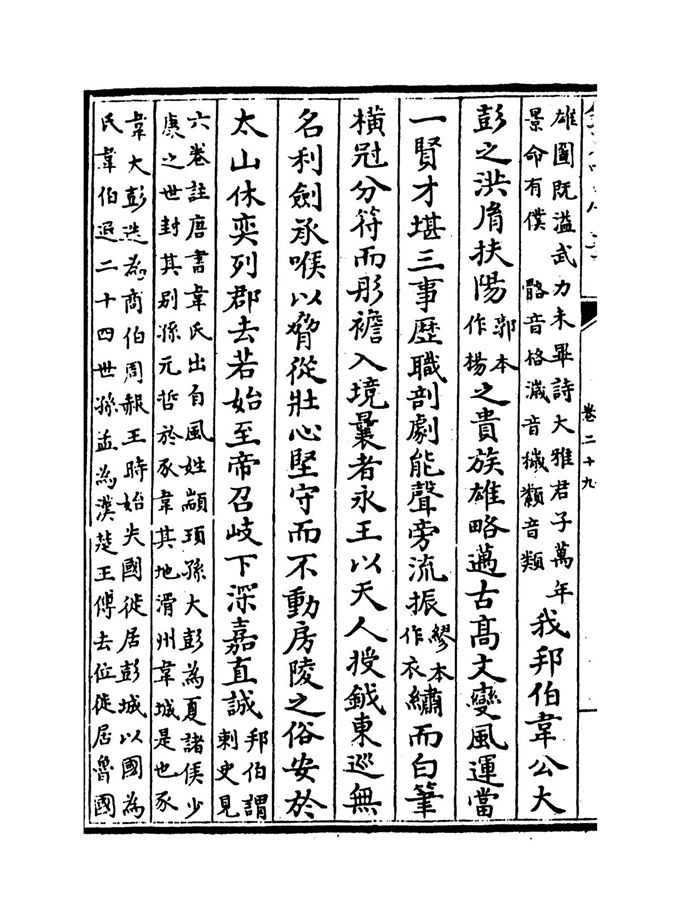 卷二十九
雄圖既溢武力未畢詩大雅君子萬年
景命有僕　髂音恪濊音穢纇音類
我邦伯韋公大
彭之洪胤扶陽郭本作楊之貴族雄略邁古高文變風運當
一賢才堪三事歷職剖劇能聲旁流振繆本作衣繡而白筆
橫冠分符而彤襜入境曩者永王以天人授鉞東巡無
名利劍承喉以脅從壯心堅守而不動房陵之俗安於
太山休奕列郡去若始至帝召岐下深嘉直誠邦伯謂刺史見
六卷註唐書韋氏出自風姓顓頊孫大彭為夏諸侯少
康之世封其别孫元哲於豕韋其地滑州韋城是也豕
韋大彭迭為商伯周赧王時始失國徙居彭城以國為
氏韋伯遐二十四世孫孟為漢楚王傅去位徙居魯國